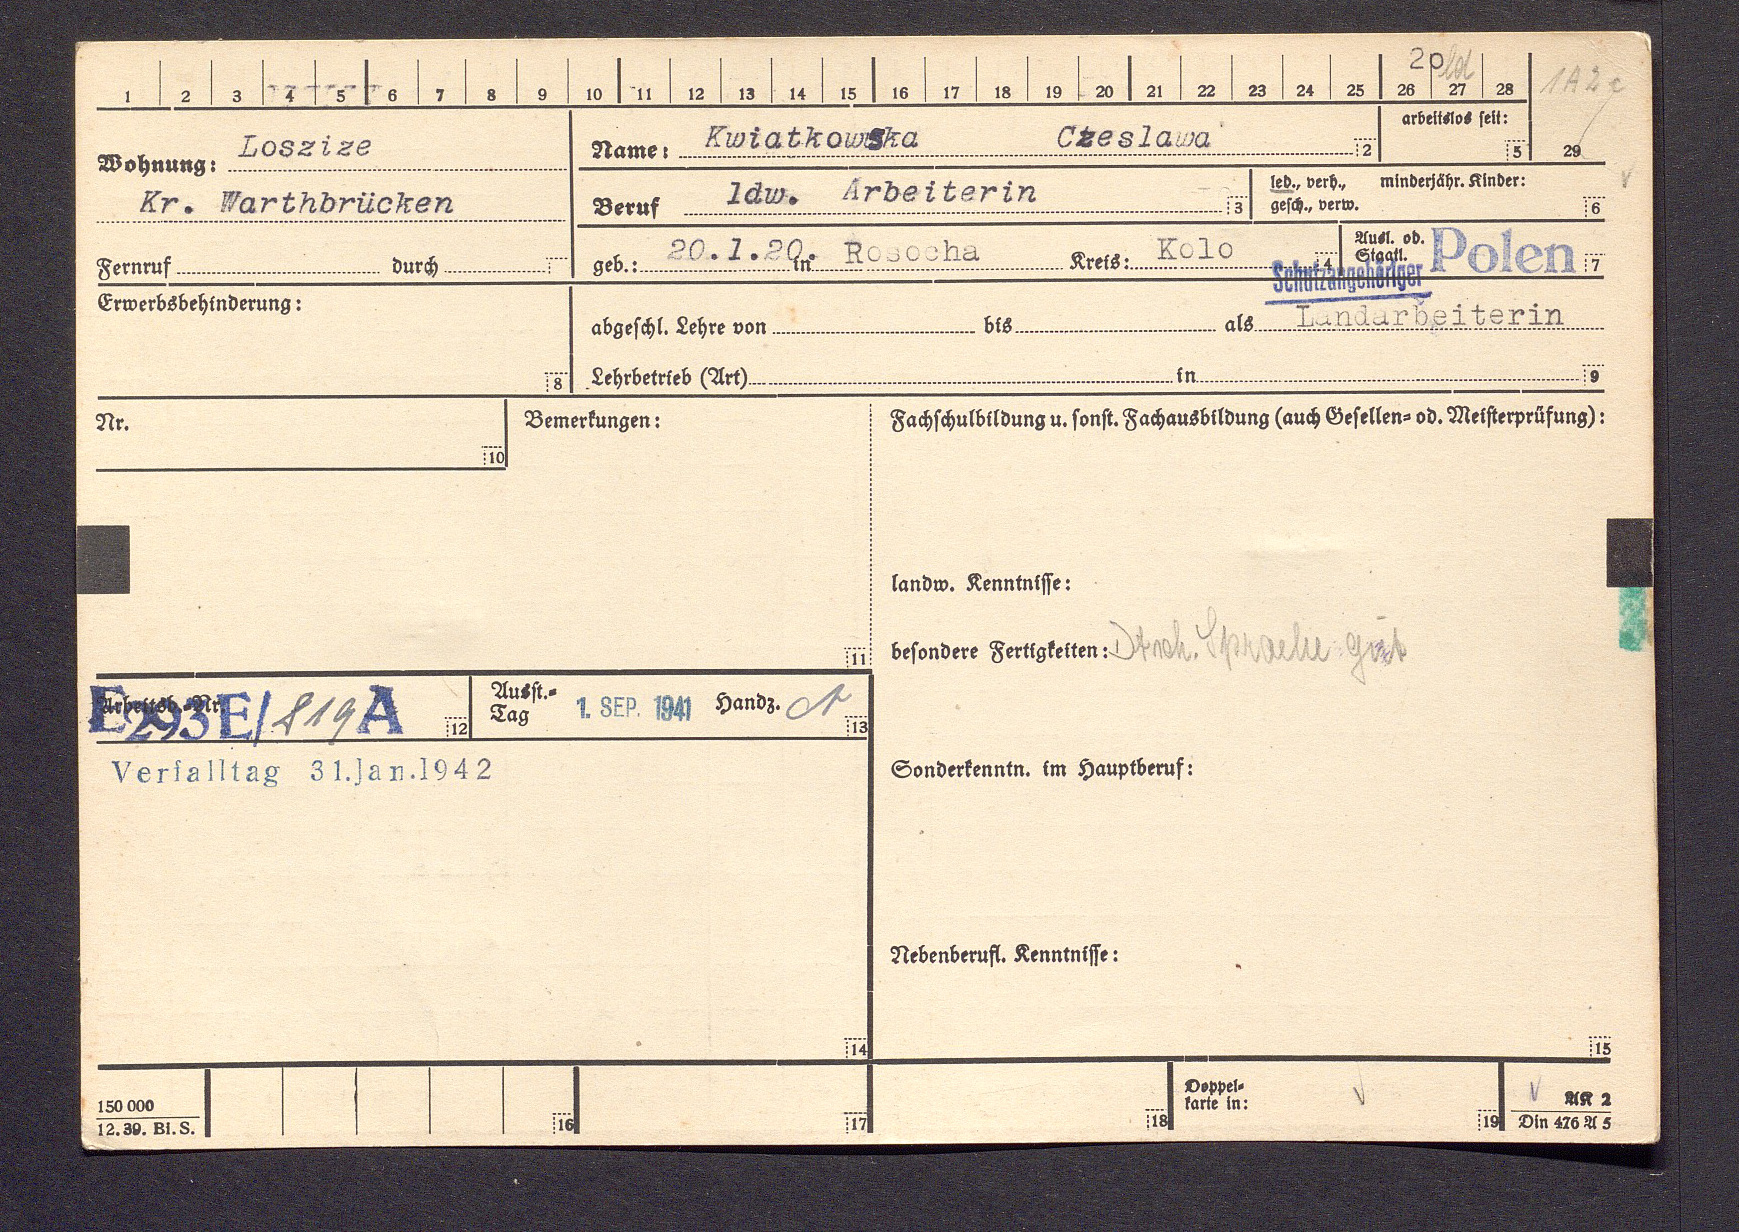 20
1 2 3 4 5 6 7 8 9 10 11 12 13 14 15 16 17 18 19 20 21 22 23 24 25 26 27 28
1A2c
arbeitslos seit:
5
29
Wohnung: Loszize
Kr. Warthbrücken
Name: Kwiatkowska Czeslawa 2
Beruf ldw. Arbeiterin 3
led., verh., minderjähr. Kinder:
gesch., verw. 6
Fernruf durch
geb.: 20.1.20. in Rosocha Kreis: Kolo 4
Ausl. od.
Staatl. Polen 7
Schutzangehöriger
Erwerbsbehinderung:
8
abgeschl. Lehre von bis als Landarbeiterin
Lehrbetrieb (Art) in 9
Nr.
10
Bemerkungen:
11
Fachschulbildung u. sonst. Fachausbildung (auch Gesellen- od. Meisterprüfung):
landw. Kenntnisse:
besondere Fertigkeiten: Dtsch. Sprache gut
Arbeitsb.-Nr. E293E/819A 12
Ausst.-
Tag 1. SEP. 1941 Handz. 13
Verfalltag 31.Jan.1942
Sonderkenntn. im Hauptberuf:
Nebenberufl. Kenntnisse:
14
15
150 000
12. 39. Bl. S.
16
17
18
Doppel-
karte in:
19
AK 2
Din 476 A 5